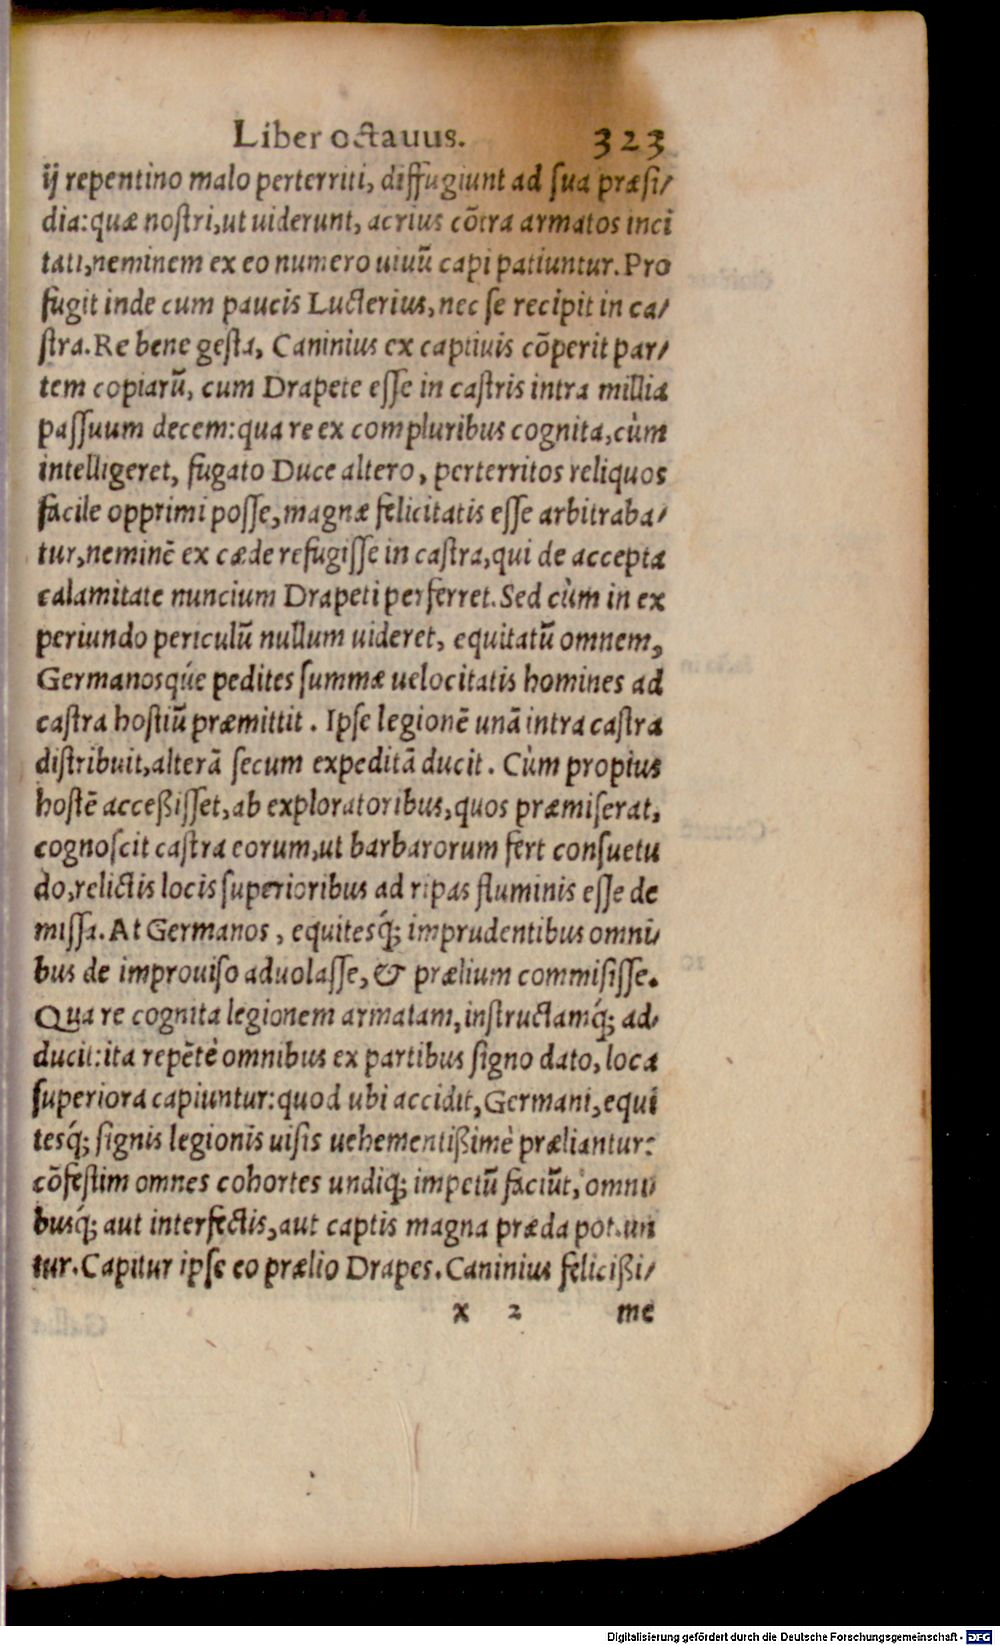 Liber octauus. 323
ij repentino malo perterriti, diffugiunt ad ſua præſi/
dia: quæ noſtri, ut uiderunt, acrius cõtra armatos inci
tati, neminem ex eo numero uiuũ capi patiuntur. Pro
fugit inde cum paucis Lucterius, nec ſe recipit in ca/
ſtra. Re bene geſta, Caninius ex captiuis cõperit par/
tem copiarũ, cum Drapete eſſe in caſtris intra millia
paſſuum decem: qua re ex compluribus cognita, cùm
intelligeret, fugato Duce altero, perterritos reliquos
facile opprimi poſſe, magnæ felicitatis eſſe arbitraba/
tur, neminẽ ex cæde refugiſſe in caſtra, qui de accepta
calamitate nuncium Drapeti perferret. Sed cùm in ex
periundo periculũ nullum uideret, equitatũ omnem,
Germanosqúe pedites ſummæ uelocitatis homines ad
caſtra hoſtiũ præmittit. Ipſe legionẽ unã intra caſtra
diſtribuit, alterã ſecum expeditã ducit. Cùm propius
hoſtẽ acceßiſſet, ab exploratoribus, quos præmiſerat,
cognoſcit caſtra eorum, ut barbarorum fert conſuetu
do, relictis locis ſuperioribus ad ripas fluminis eſſe de
miſſa. At Germanos, equitesq́; imprudentibus omni/
bus de improuiſo aduolaſſe, & prælium commiſiſſe.
Qua re cognita legionem armatam, inſtructamq́; ad/
ducit: ita repẽtè omnibus ex partibus ſigno dato, loca
ſuperiora capiuntur: quod ubi accidit, Germani, equi
tesq́; ſignis legionis uiſis uehementißimè præliantur:
cõfeſtim omnes cohortes undiq; impetũ faciũt, omni/
busq́; aut interfectis, aut captis magna præda potiun
tur. Capitur ipſe eo prælio Drapes. Caninius felicißi/
x 2 me
Digitalisierung gefördert durch die Deutsche Forschungsgemeinschaft - DFG